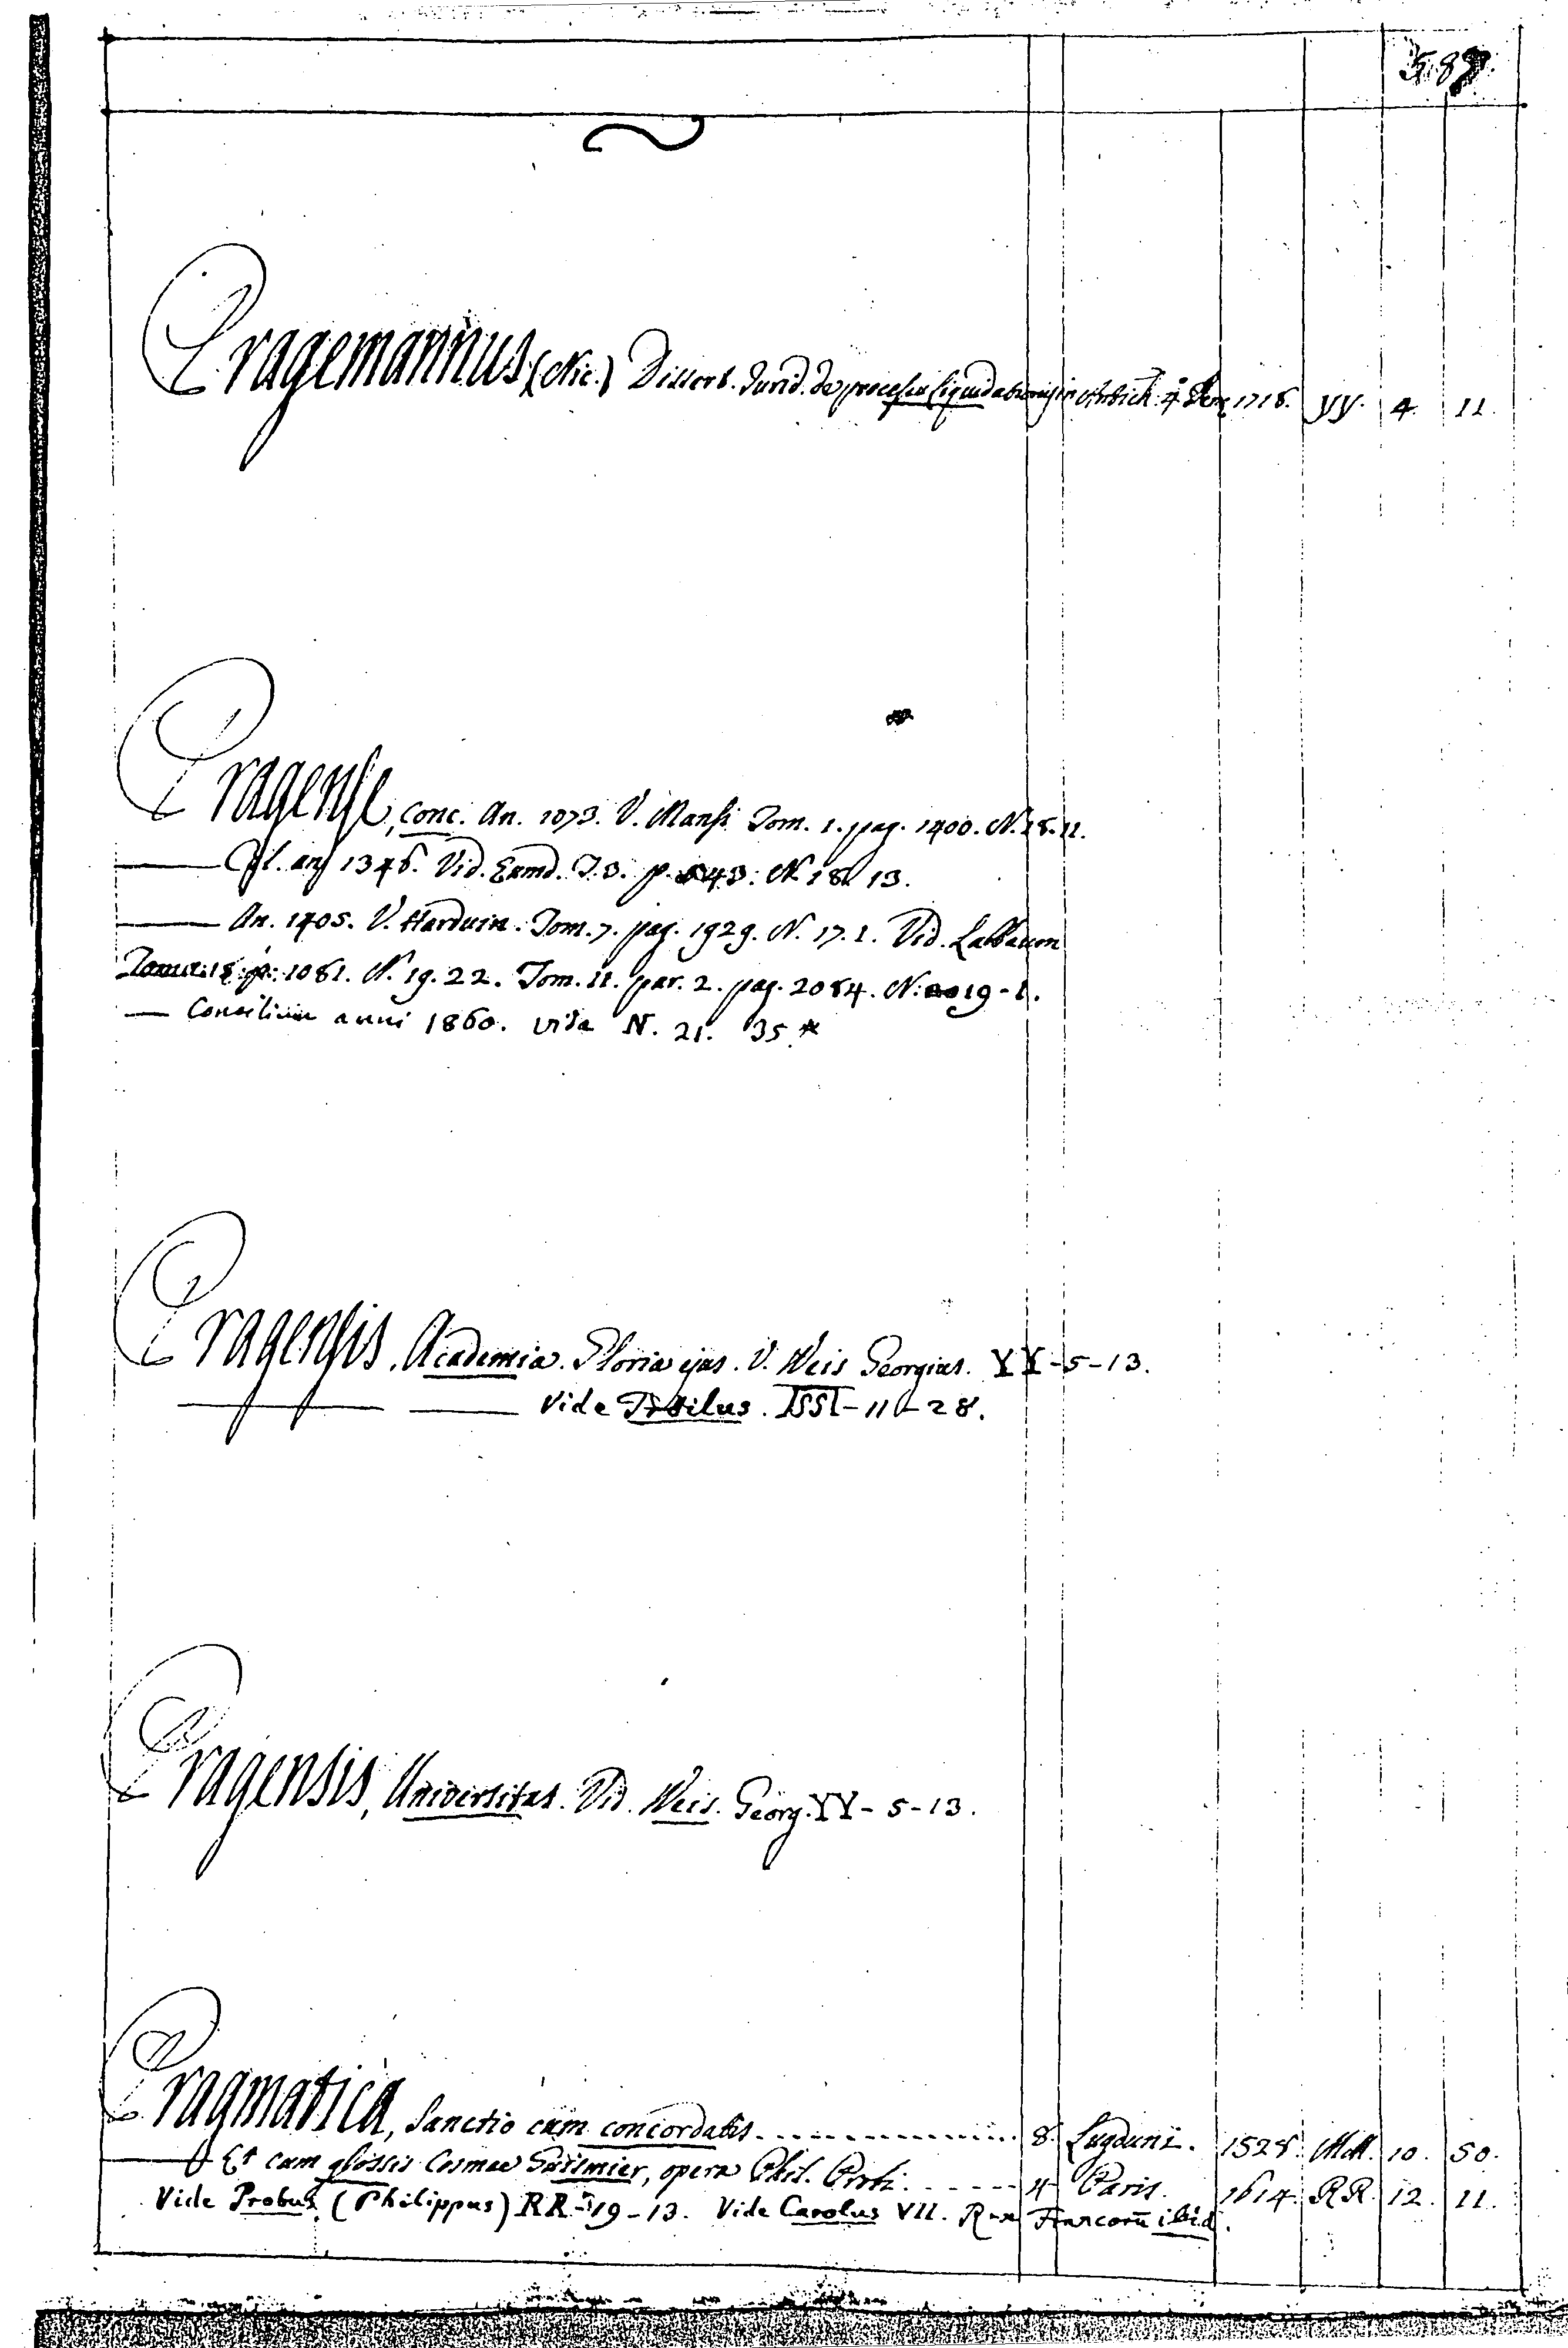 587
Pragemannus (Nic.) Dissert. Jurid. de processu liquidationis in 4º Jenæ 1716. YY. 4. 11.
Pragense, Conc. An. 1073. V. Mansi Tom. 1. pag. 1400. N. 18. 11.
Al. an 1346. Vid. Eumd. T. 3. p. 543. N. 18. 13.
An. 1405. V. Harduin. Tom. 7. pag. 1929. N. 17. 1. Vid. Labbæum
Tom. 15. p. 1081. N. 19. 22. Tom. 11. par. 2. pag. 2084. N. 19-1.
— Concilium anni 1860. vide N. 21. 35*
Pragensis. Academia. Gloria ejus. V. Weis Georgius. YY-5-13.
Vide -11-28.
Pragensis, Universitas. Vid. Weis. Georg. YY-5-13.
Pragmatica, Sanctio cum concordatis 8. Lugduni. 1528. MM. 10. 50.
Et cum glossis Cosmae Guimier, opera Phil. Probi. 4 Paris. 1614. RR. 12. 11.
Vide Probus (Philippus) RR-19-13. Vide Carolus VII. Rex Francorū ibid.